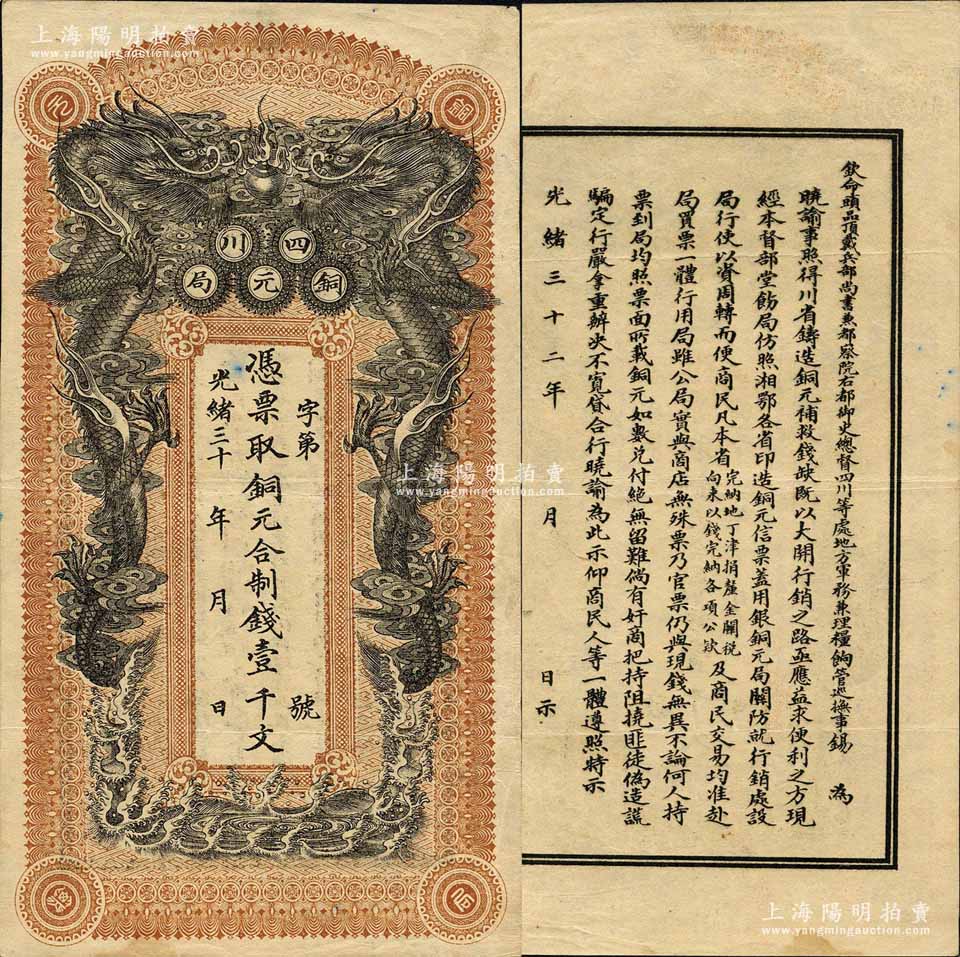 上海陽明拍賣
www.yangmingauction.com
四川
銅元局
字第 號
憑票取銅元合制錢壹千文
光緒三十 年 月 日
欽命頭品頂戴兵部尚書兼都察院右都御史總督四川等處地方軍務兼理糧餉管巡撫事錫 為
曉諭事照得川省鑄造銅元補救錢缺既以大開行銷之路亟應益求便利之方現
經本督部堂飭局仿照湘鄂各省印造銅元信票蓋用銀銅元局關防就行銷處設
局行使以資周轉而便商民凡本省完納地丁津捐釐金關稅向來以錢完納各項公款及商民交易均准赴
局買票一體行用局雖公局實與商店無殊票乃官票仍與現錢無異不論何人持
票到局均照票面所載銅元如數兌付絕無留難倘有奸商把持阻撓匪徒偽造謊
騙定行嚴拿重辦決不寬貸合行曉諭為此示仰商民人等一體遵照特示
光緒三十二年 月 日示
上海陽明拍賣
www.yangmingauction.com
上海陽明拍賣
www.yangmingauction.com